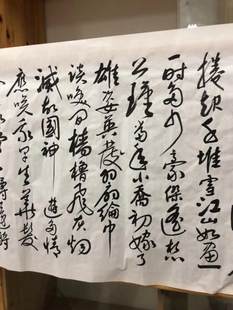 捲起千堆雪江山如畫
一時多少豪傑遥想
公瑾當年小喬初嫁了
雄姿英發羽扇綸巾
談笑间檣櫓飛灰烟
滅故國神遊多情
應笑我早生華髮